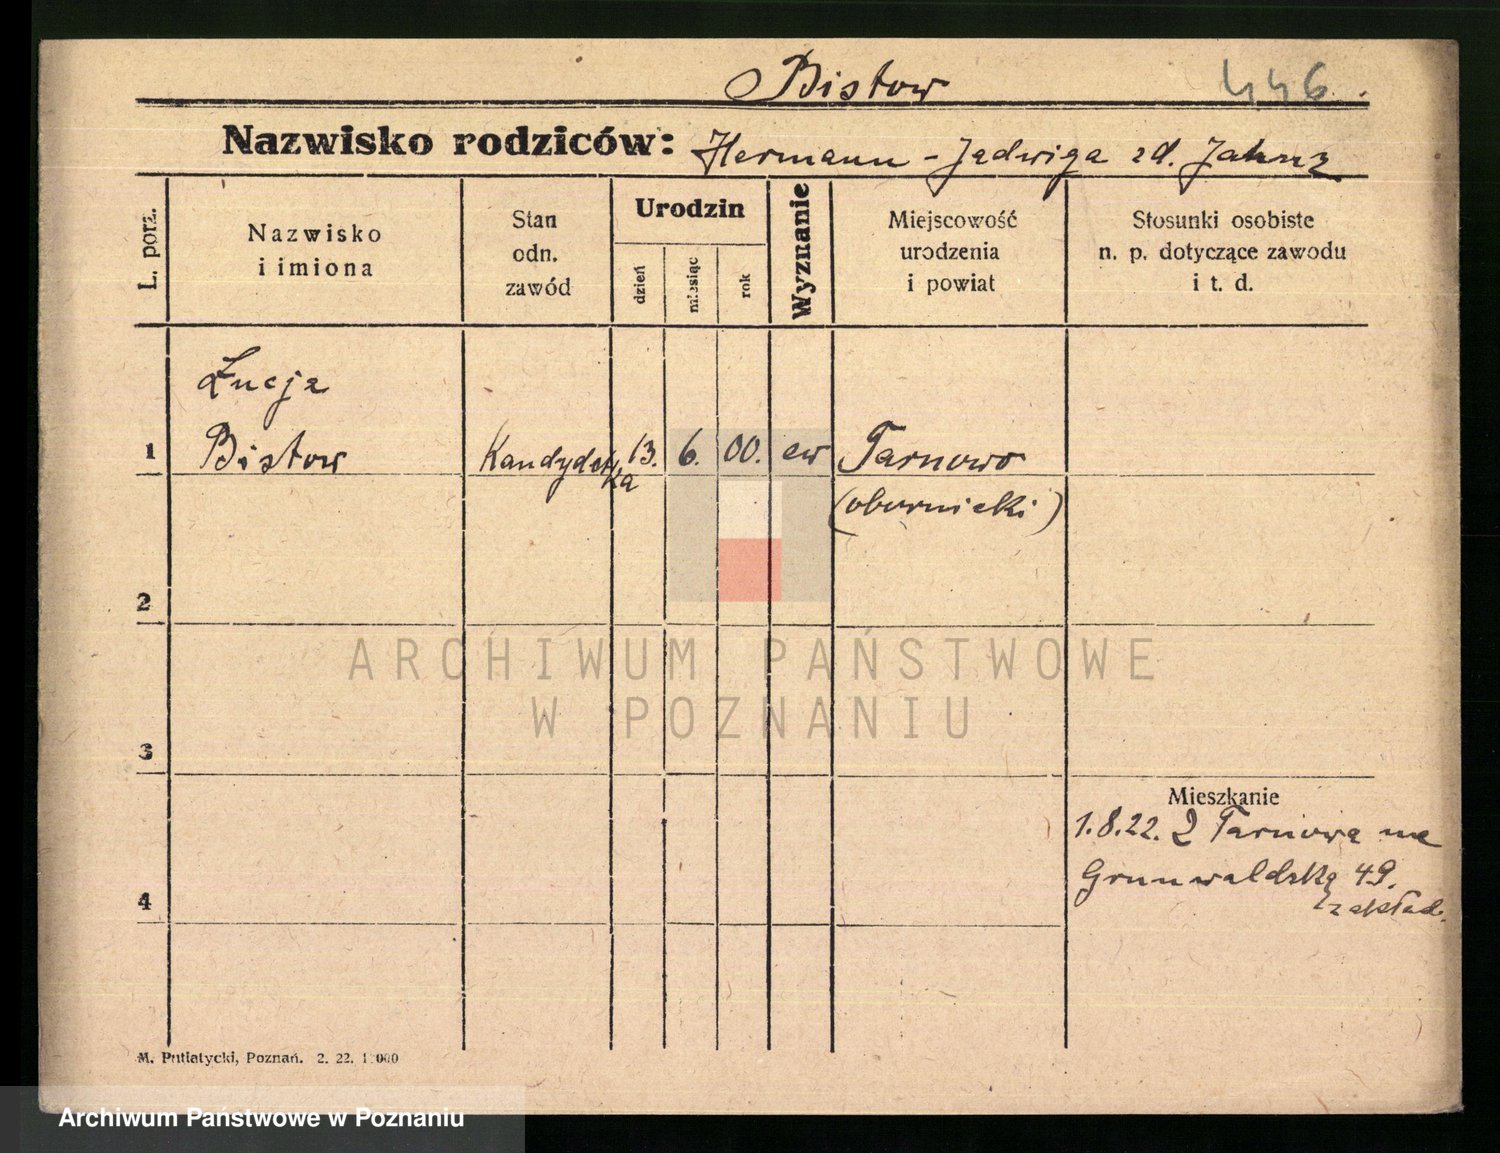 Bistow
446.
Nazwisko rodziców: Hermann - Jadwiga zd. Jahnz
L. porz.
Nazwisko
i imiona
Stan
odn.
zawód
Urodzin
dzień
miesiąc
rok
Wyznanie
Miejscowość
urodzenia
i powiat
Stosunki osobiste
n. p. dotyczące zawodu
i t. d.
Łucja
1 Bistow Kandydatka 13. 6. 00. ew Tarnowo
(obornicki)
2
3
4
Mieszkanie
1.8.22. Z Tarnowa na
Grunwaldzką 49.
zakład.
M. Putiatycki, Poznań. 2. 22.
ARCHIWUM PAŃSTWOWE
W POZNANIU
Archiwum Państwowe w Poznaniu